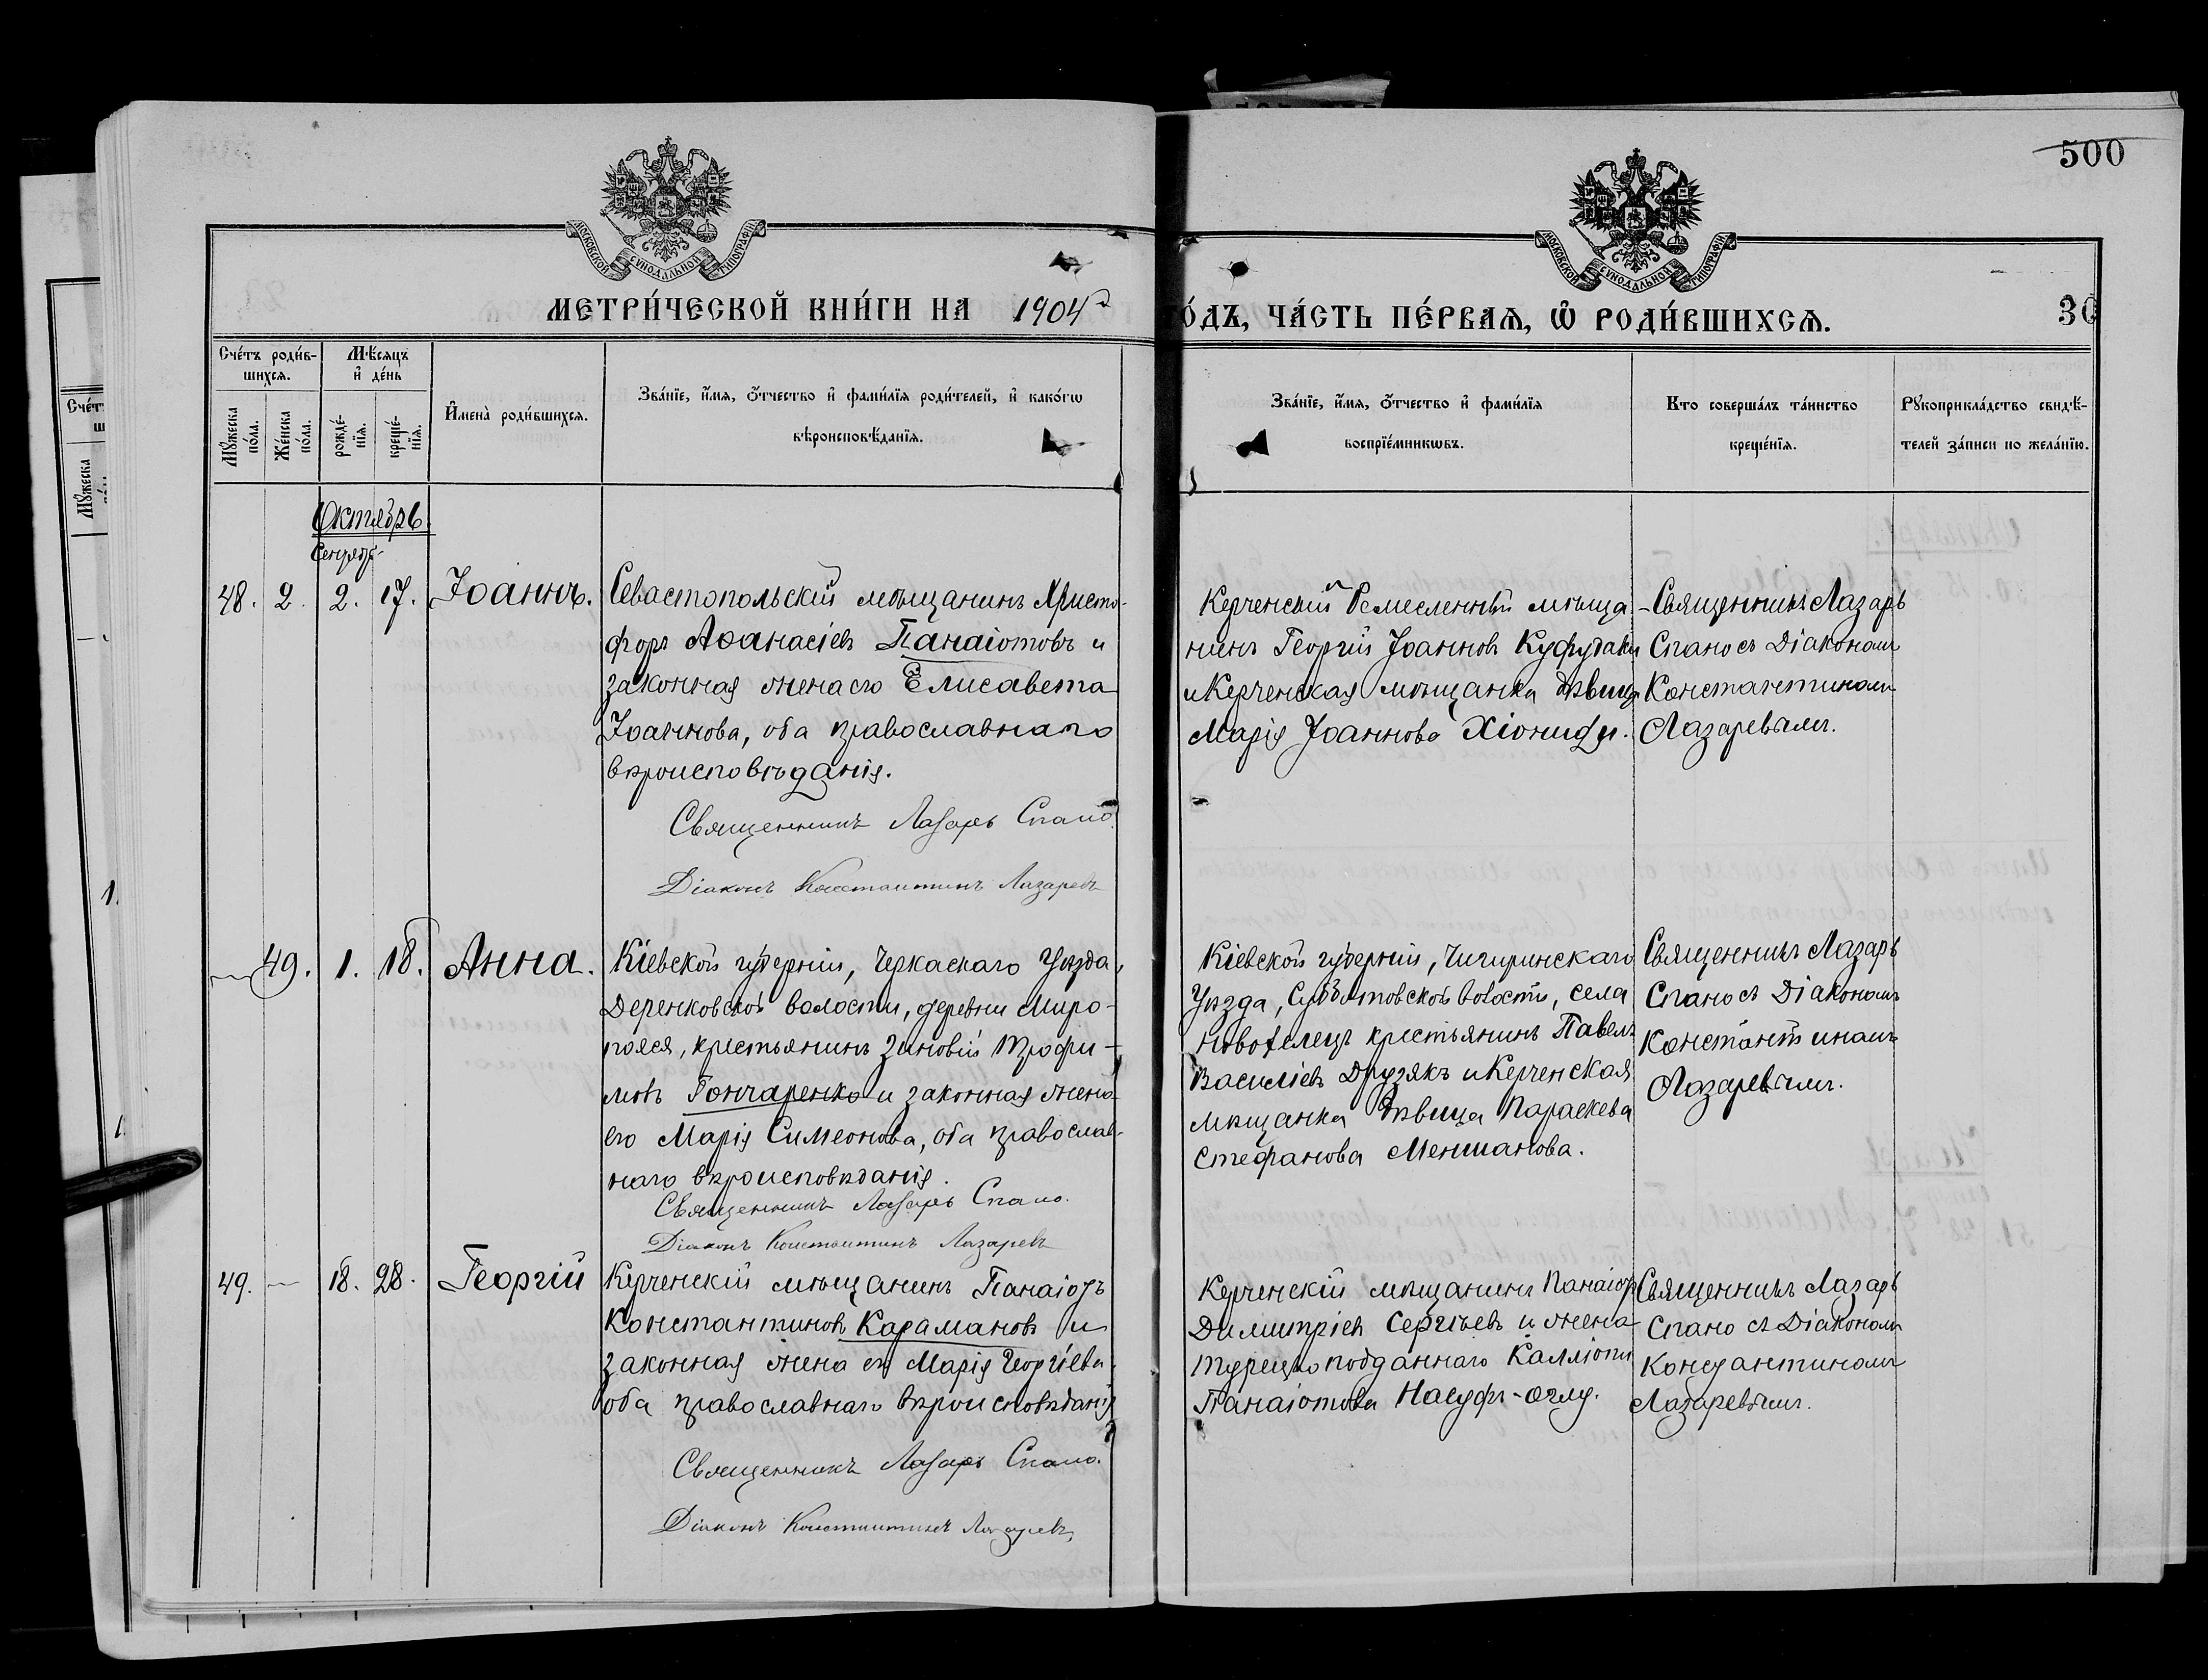 500
МОСКОВСКОЙ СѴНОДАЛЬНОЙ ТИПОГРАФІИ
МОСКОВСКОЙ СѴНОДАЛЬНОЙ ТИПОГРАФІИ
МЕТРИ́ЧЕСКОЙ КНИ́ГИ НА 1904
О́ДЪ, ЧА́СТЬ ПЕ́РВАЯ, Ѡ РОДИ́ВШИХСЯ.
30
Сче́тъ роди́в-
шихся.
Мѣ́сяцъ
и де́нь
Мꙋ́жеска
по́ла.
Же́нска
по́ла.
рожде́-
нїя.
креще́-
нїя.
Имена̀ роди́вшихся.
Зва́нїе, и́мя, о́тчество и фами́лїя роди́телей, и како́гѡ
вѣроисповѣ́данїя.
Зва́нїе, и́мя, о́тчество и фами́лїя
воспрїе́мникѡвъ.
Кто соверша́лъ та́инство
креще́нїя.
Рꙋкоприкла́дство свидѣ́-
телей за́писи по жела́нїю.
Октябрь.
48. 2. 2. 17. Іоаннъ.
Севастопольскій мѣщанинъ Христо-
форъ Аѳанасіевъ Панаіотовъ и
законная жена его Елисавета
Іоаннова, оба православнаго
вѣроисповѣданія.
Священникъ Лазарь Спано.
Діаконъ Константинъ Лазаревъ
Керченскій Ремесленный мѣща-
нинъ Георгій Іоанновъ
и Керченская мѣщанка дѣвица
Марія Іоаннова
Священникъ Лазарь
Спано съ Діакономъ
Константиномъ
Лазаревымъ.
49. 1. 18. Анна.
Кіевской губерніи, Черкаскаго уѣзда,
Деренковской волости, деревни Миро-
пояся, крестьянинъ Зиновій Трофи-
мовъ Гончаренко и законная жена
его Марія Симеонова, оба православ-
наго вѣроисповѣданія.
Священникъ Лазарь Спано.
Діаконъ Константинъ Лазаревъ
Кіевской губерніи, Чигиринскаго
уѣзда, Субботовской волости, села
Новоселецъ крестьянинъ Павелъ
Василіевъ Друзякъ и Керченская
мѣщанка дѣвица Параскева
Стефанова Меншанова.
Священникъ Лазарь
Спано съ Діакономъ
Константиномъ
Лазаревымъ.
49. — 18. 28. Георгій
Керченскій мѣщанинъ Панаіотъ
Константиновъ Карамановъ и
законная жена его Марія Георгіева,
оба православнаго вѣроисповѣданія
Священникъ Лазарь Спано.
Діаконъ Константинъ Лазаревъ
Керченскій мѣщанинъ Панаіотъ
Димитріевъ Сергѣевъ и жена
турецко подданнаго Калліопи
Панаіотова Насуфъ-оглу.
Священникъ Лазарь
Спано съ Діакономъ
Константиномъ
Лазаревымъ.